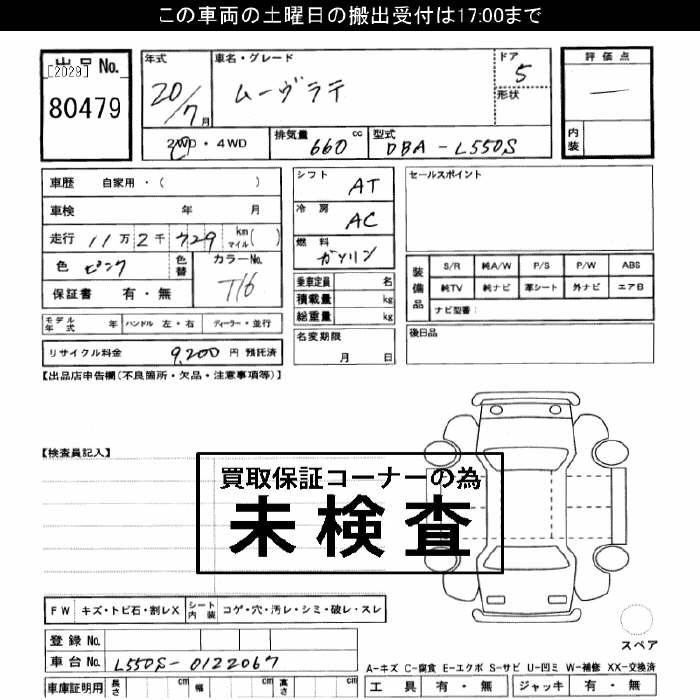 この車両の土曜日の搬出受付は17:00まで
出品No.
[2029]
80479
年式
20/7月
車名・グレード
ムーヴラテ
ドア
5
形状
評価点
―
内装
2WD・4WD
排気量 660 cc
型式 DBA-L550S
車歴 自家用・( )
車検 年 月
走行 11万2千729 km マイル( )
色 ピンク 色替
カラーNo.
T16
保証書 有・無
シフト AT
冷房 AC
燃料 ガソリン
乗車定員 名
積載量 kg
総重量 kg
セールスポイント
装備品
S/R 純A/W P/S P/W ABS
純TV 純ナビ 革シート 外ナビ エアB
ナビ型番:
モデル年式 年 ハンドル 左・右 ディーラー・並行
名変期限
月 日
後日品
リサイクル料金 9,200 円 預託済
【出品店申告欄(不良箇所・欠品・注意事項等)】
【検査員記入】
買取保証コーナーの為
未検査
FW キズ・トビ石・割レX シート内装 コゲ・穴・汚レ・シミ・破レ・スレ
登録No.
車台No. L550S-0122067
車庫証明用 長さ cm 幅 cm 高さ cm
スペア
A-キズ C-腐食 E-エクボ S-サビ U-凹ミ W-補修 XX-交換済
工具 有・無 ジャッキ 有・無